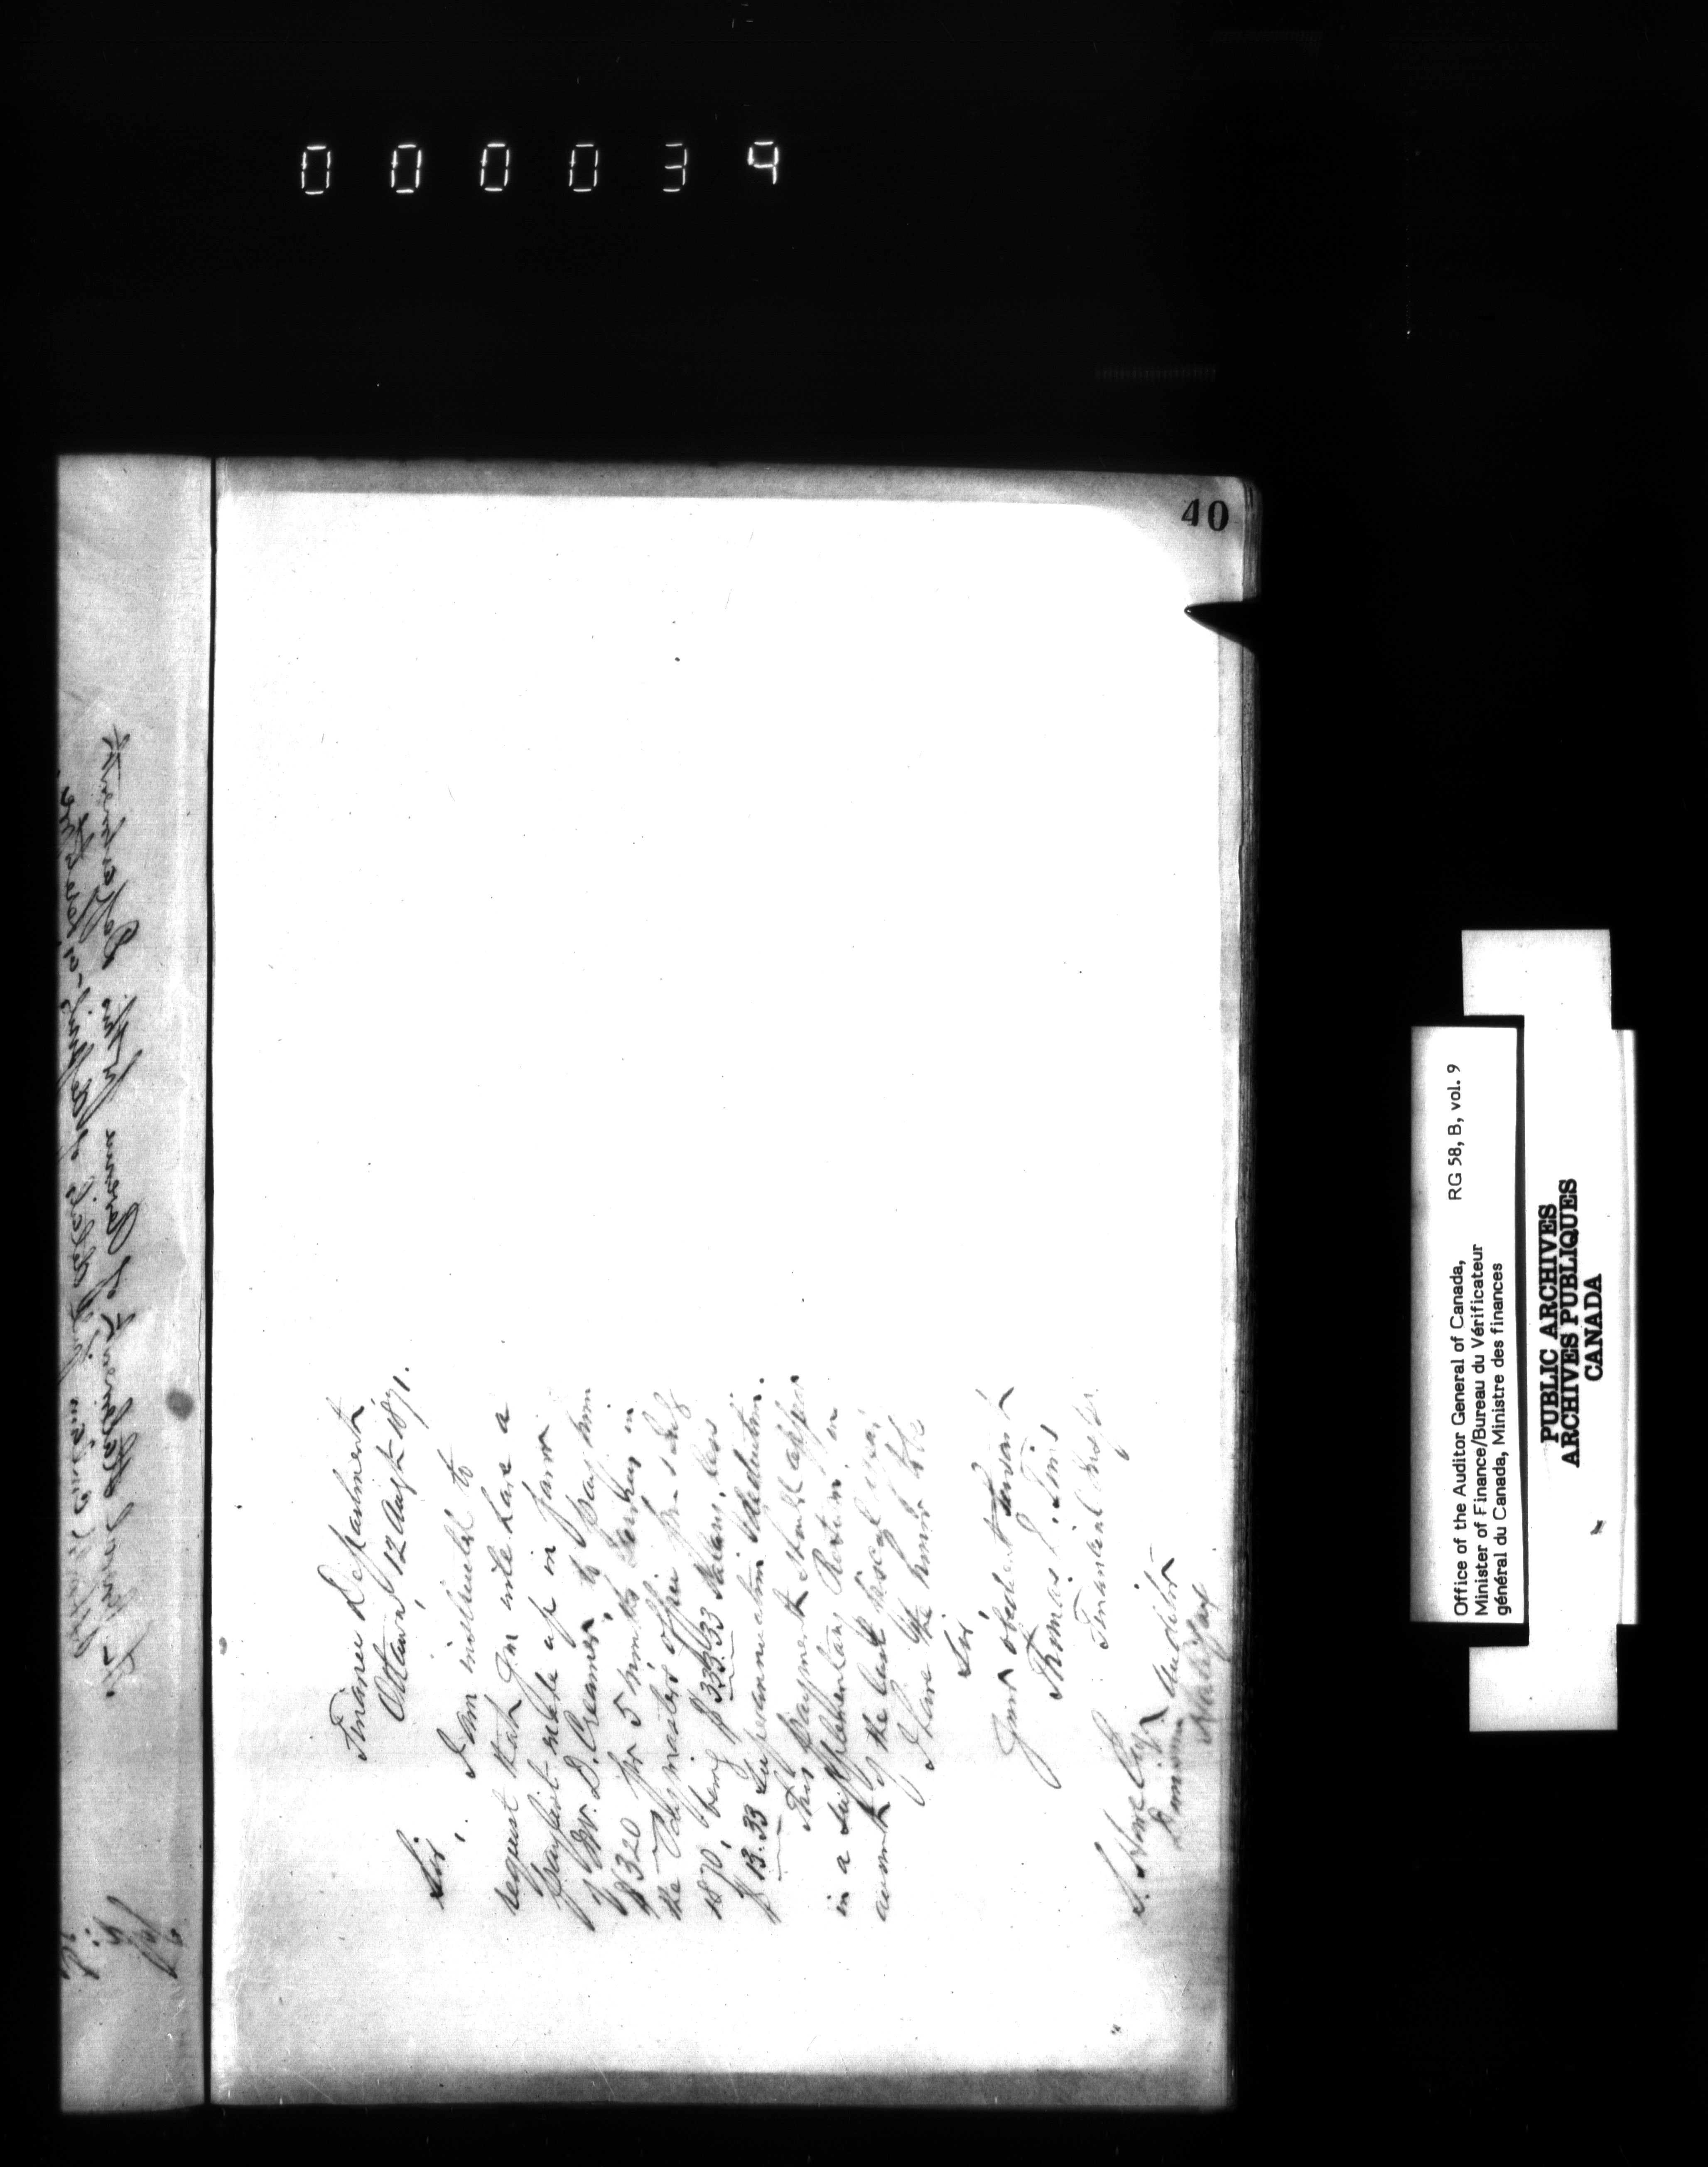 000039
40
Finance Department
Ottawa, 12 Augt 1871.
Sir,
I am instructed to
request that you will have a
paylist made up in favor
of Mr. D. Creamer, to pay him
$320 for 5 months services in
the Paymasters office
1870, being $333.33 salary, less
$13.33 Superannuation deduction.
This payment should appear
in a supplementary Return, on
account of the last fiscal year.
I have the honor to be
Sir
Your obedient servant
Thomas Tims
Financial Inspr
Dominion Auditor
Halifax
Office of the Auditor General of Canada, RG 58, B, vol. 9
Minister of Finance/Bureau du Vérificateur
général du Canada, Ministre des finances
PUBLIC ARCHIVES
ARCHIVES PUBLIQUES
CANADA